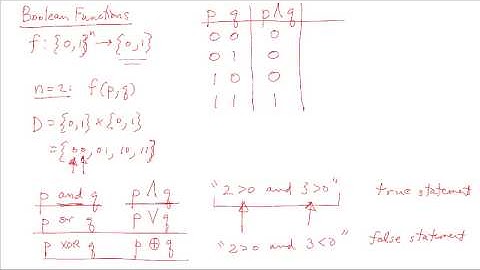 Boolean Functions
f: {0,1}ⁿ → {0,1}
n=2: f(p,q)
D = {0,1} × {0,1}
= {00, 01, 10, 11}
p and q p ∧ q
p or q p ∨ q
p xor q p ⊕ q
p q p ∧ q
0 0 0
0 1 0
1 0 0
1 1 1
"2>0 and 3>0" true statement
"2>0 and 3<0" false statement